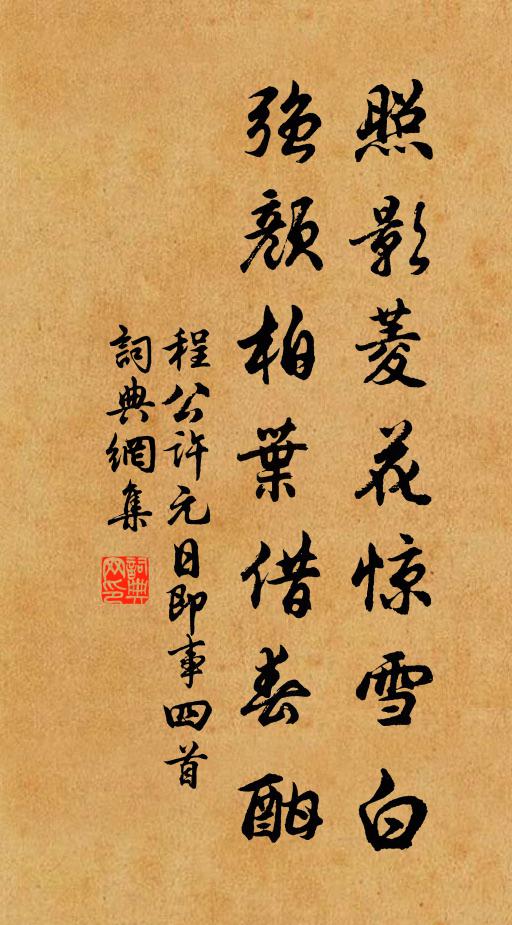 照影菱花惊雪白
強顏柏葉借春酣
程公許元日即事四首
詞典網集
詞典
网印